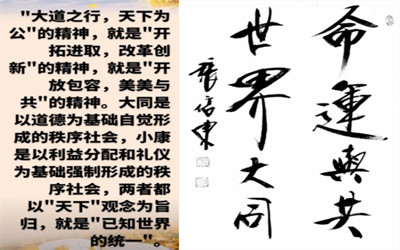 "大道之行，天下为
公"的精神，就是"开
拓进取，改革创
新"的精神，就是"开
放包容，美美与
共"的精神。大同是
以道德为基础自觉形
成的秩序社会，小康
是以利益分配和礼仪
为基础强制形成的秩
序社会，两者都
以"天下"观念为旨
归，就是"已知世界
的统一"。
命運與共
世界大同